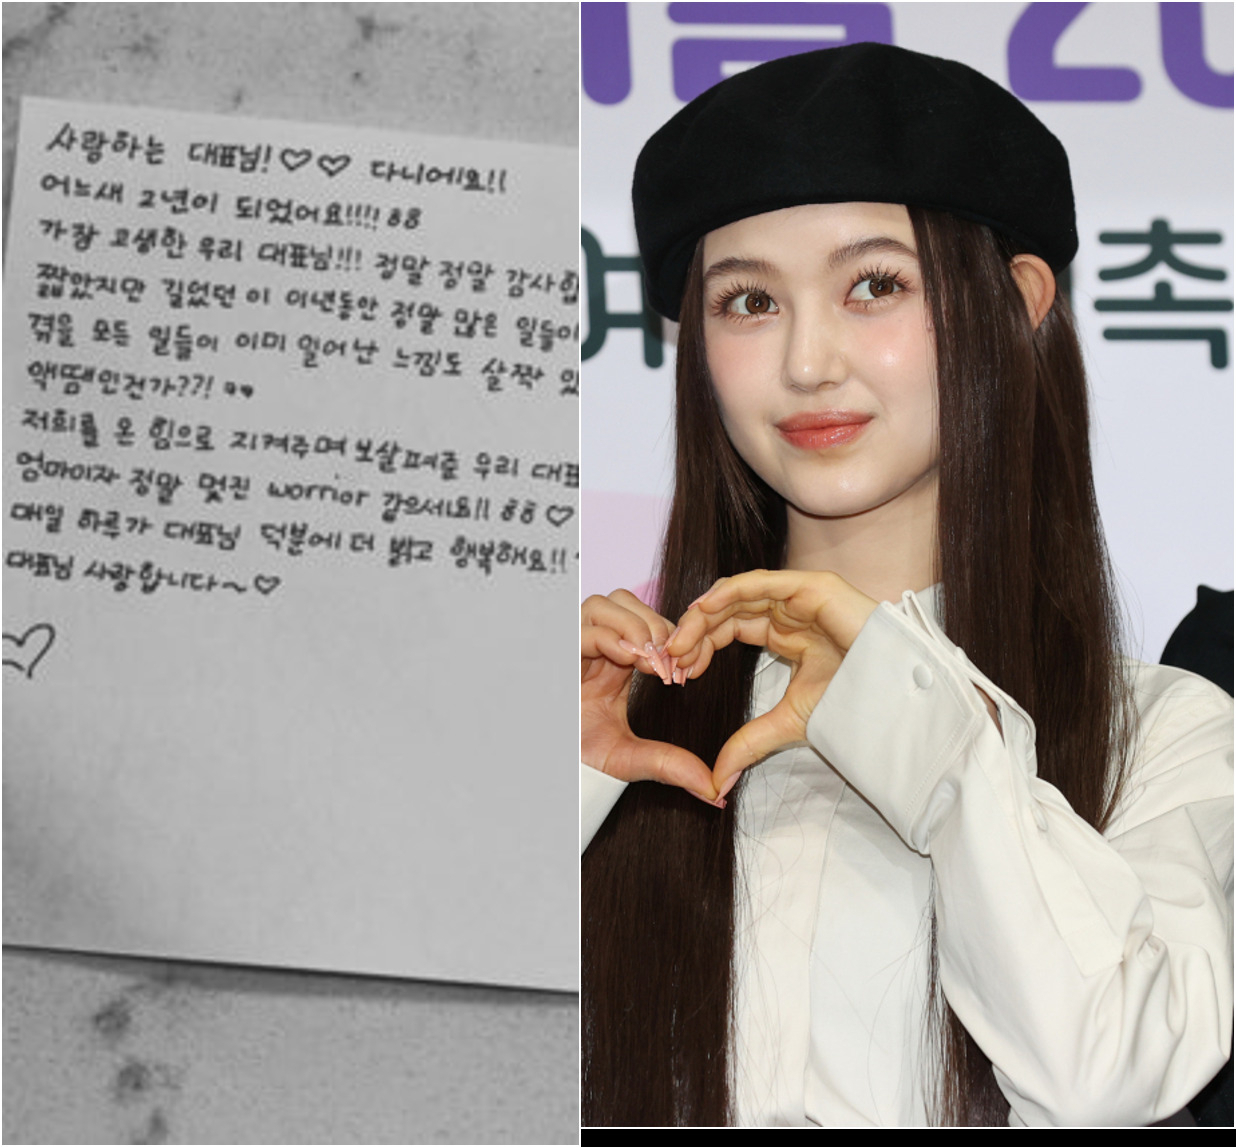 사랑하는 대표님!♡♡ 다니에요!!
어느새 2년이 되었어요!!!! 88
가장 고생한 우리 대표님!!! 정말 정말 감사합
짧았지만 길었던 이 이년동안 정말 많은 일들이
겪을 모든 일들이 이미 일어난 느낌도 살짝 있
액땜인건가??!
저희를 온 힘으로 지켜주며 보살펴줄 우리 대표
엄마이자 정말 멋진 worrior 같으세요!! 88♡
매일 하루가 대표님 덕분에 더 밝고 행복해요!!
대표님 사랑합니다~♡
20
여
촉